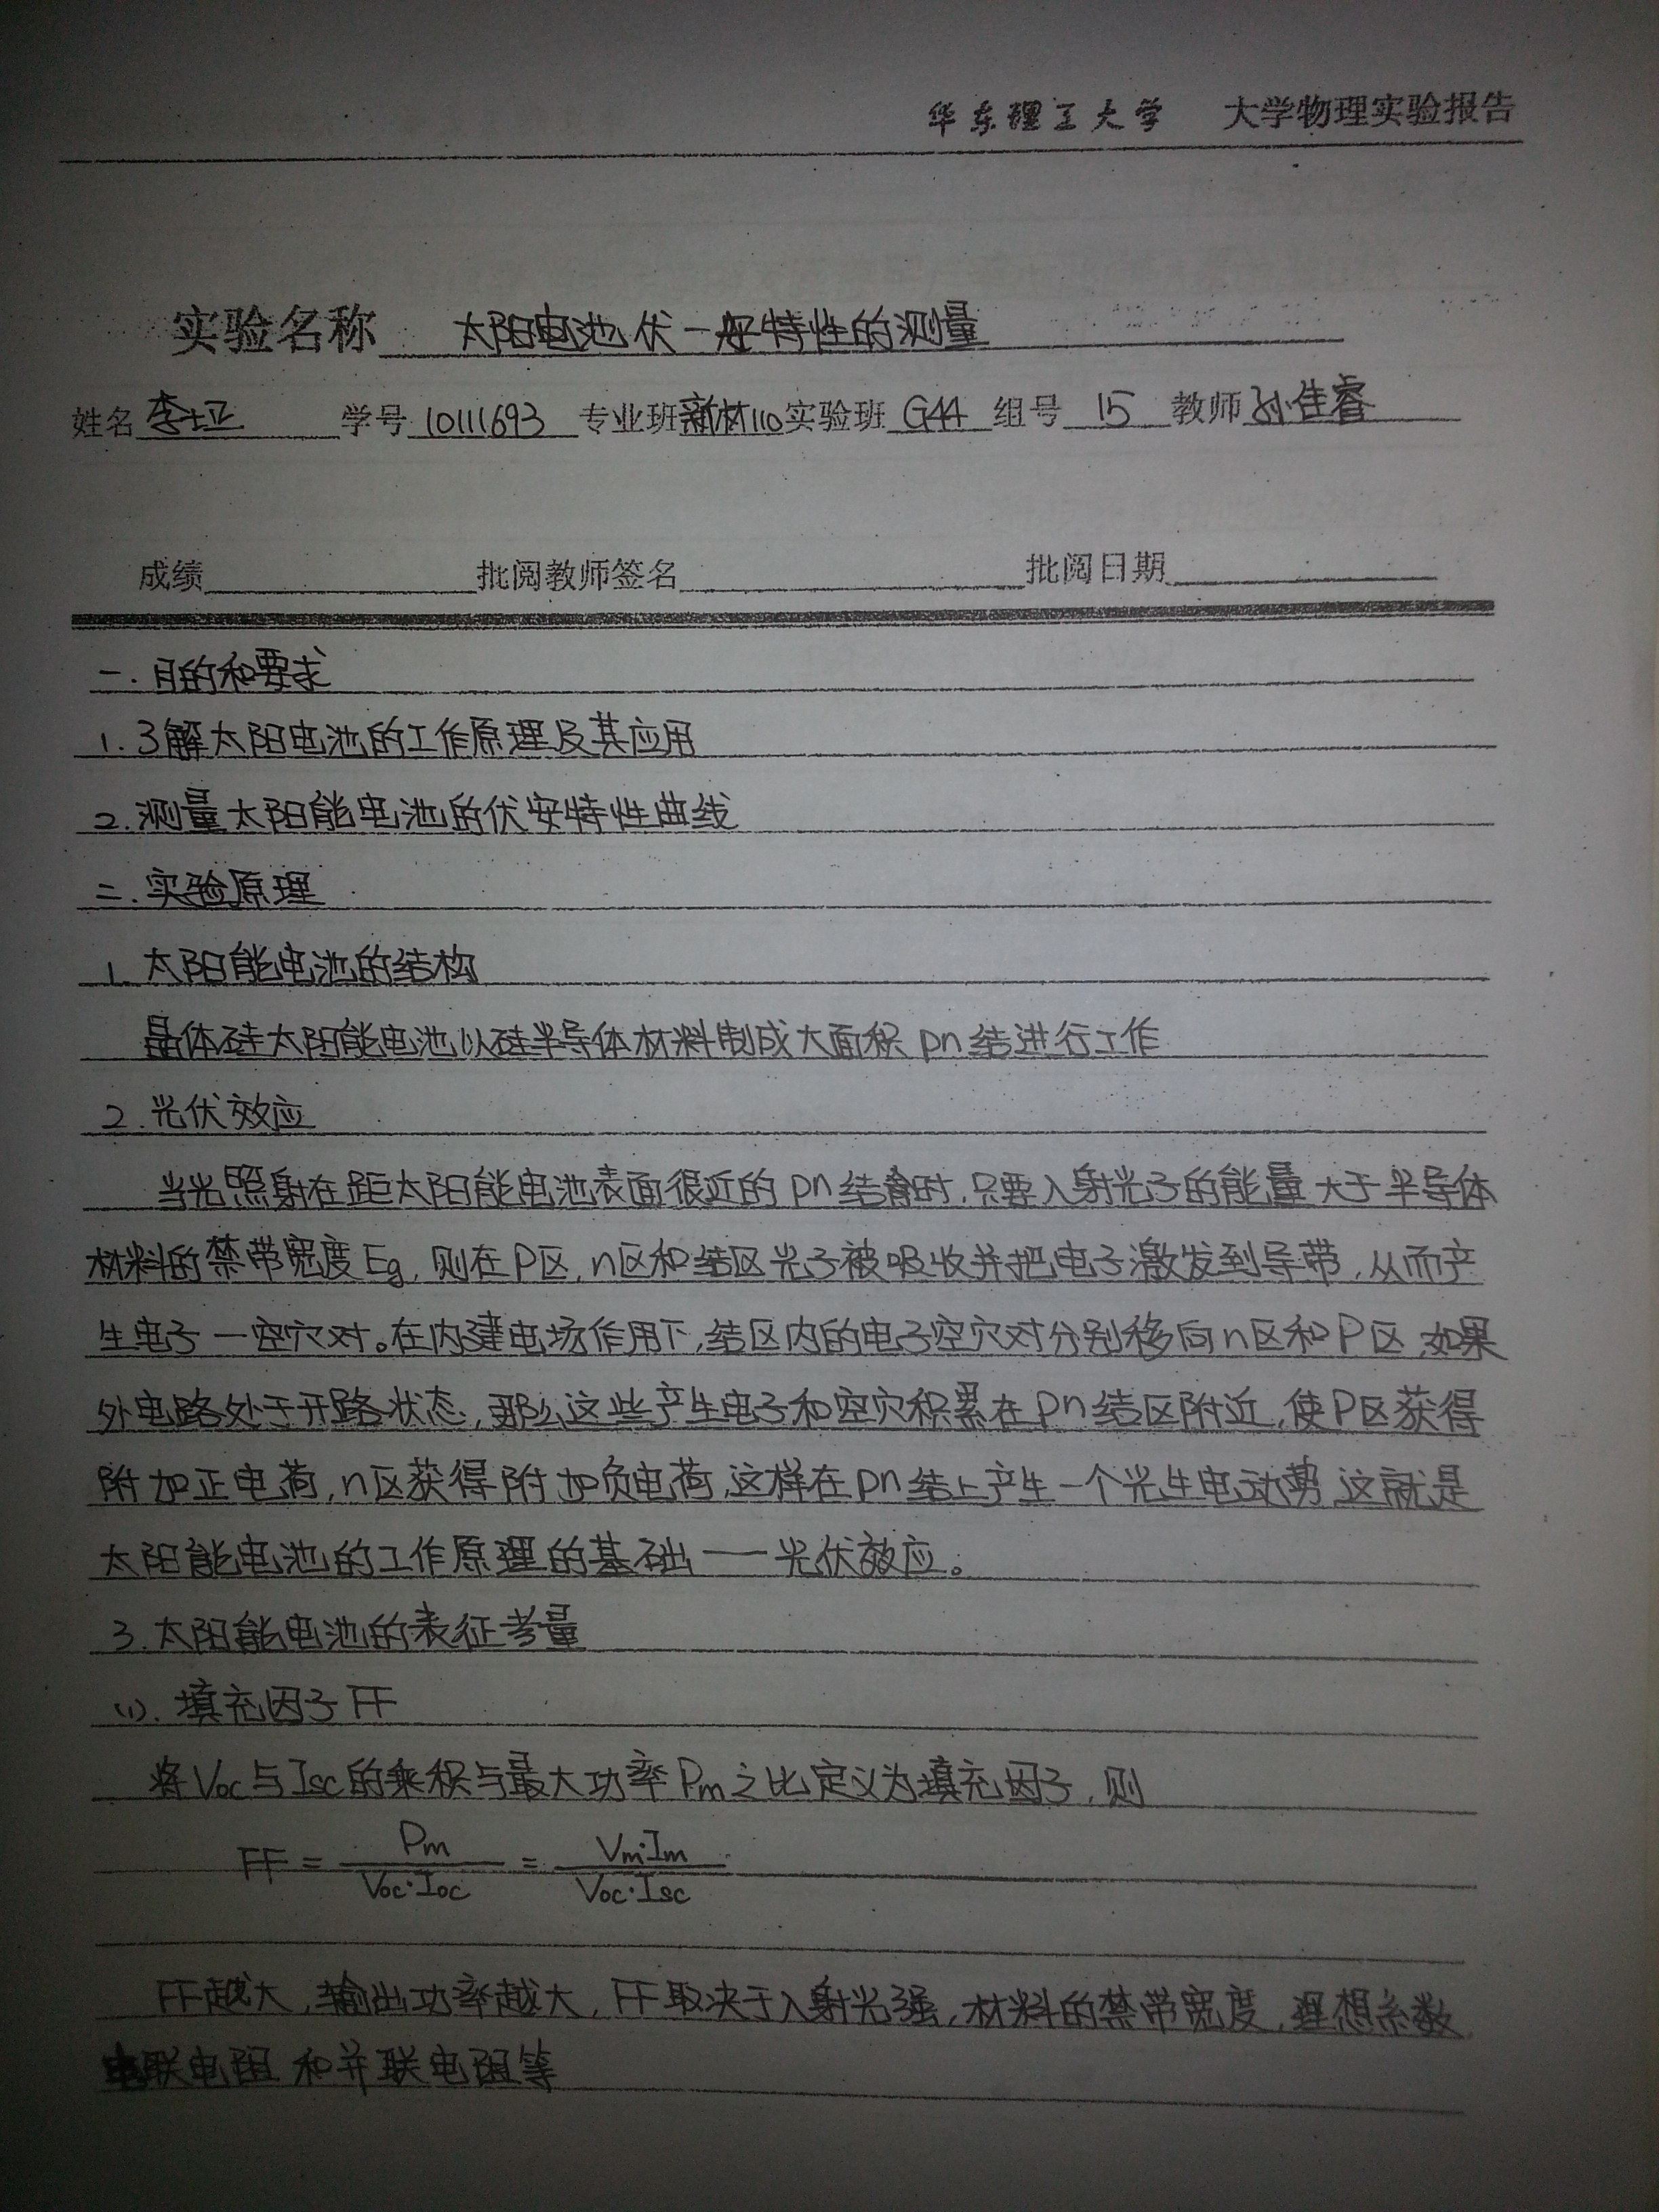 华东理工大学 大学物理实验报告
实验名称 太阳电池伏一安特性的测量
姓名 李 学号 10111693 专业班 新材110 实验班 G44 组号 15 教师 孙佳睿
成绩 批阅教师签名 批阅日期
一.目的和要求
1.了解太阳电池的工作原理及其应用
2.测量太阳能电池的伏安特性曲线
二.实验原理
1.太阳能电池的结构
晶体硅太阳能电池以硅半导体材料制成大面积pn结进行工作
2.光伏效应
当光照射在距太阳能电池表面很近的pn结时,只要入射光子的能量大于半导体
材料的禁带宽度Eg,则在P区,n区和结区光子被吸收并把电子激发到导带,从而产
生电子一空穴对。在内建电场作用下,结区内的电子空穴对分别移向n区和P区,如果
外电路处于开路状态,那么这些产生电子和空穴积累在pn结区附近,使P区获得
附加正电荷,n区获得附加负电荷,这样在pn结上产生一个光生电动势,这就是
太阳能电池的工作原理的基础——光伏效应。
3.太阳能电池的表征参量
(1).填充因子FF
将Voc与Isc的乘积与最大功率Pm之比定义为填充因子,则
FF = Pm / Voc·Ioc = Vm·Im / Voc·Isc
FF越大,输出功率越大,FF取决于入射光强,材料的禁带宽度,理想系数,
串联电阻和并联电阻等